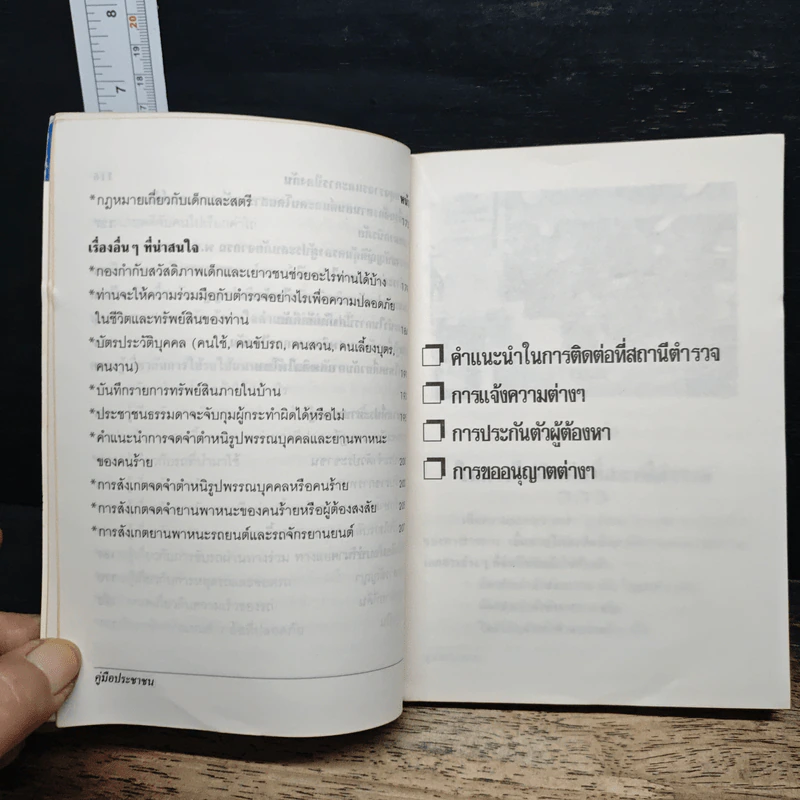 *กฎหมายเกี่ยวกับเด็กและสตรี
เรื่องอื่นๆ ที่น่าสนใจ
*กองกำกับสวัสดิภาพเด็กและเยาวชนช่วยอะไรท่านได้บ้าง
*ท่านจะให้ความร่วมมือกับตำรวจอย่างไรเพื่อความปลอดภัย
ในชีวิตและทรัพย์สินของท่าน
*บัตรประวัติบุคคล (คนใช้, คนขับรถ, คนสวน, คนเลี้ยงบุตร,
คนงาน)
*บันทึกรายการทรัพย์สินภายในบ้าน
*ประชาชนธรรมดาจะจับกุมผู้กระทำผิดได้หรือไม่
*คำแนะนำการจดจำตำหนิรูปพรรณบุคคลและยานพาหนะ
ของคนร้าย
*การสังเกตจดจำตำหนิรูปพรรณบุคคลหรือคนร้าย
*การสังเกตจดจำยานพาหนะของคนร้ายหรือผู้ต้องสงสัย
*การสังเกตยานพาหนะรถยนต์และรถจักรยานยนต์
คู่มือประชาชน
คำแนะนำในการติดต่อที่สถานีตำรวจ
การแจ้งความต่างๆ
การประกันตัวผู้ต้องหา
การขออนุญาตต่างๆ
8
20
19
18
7
17